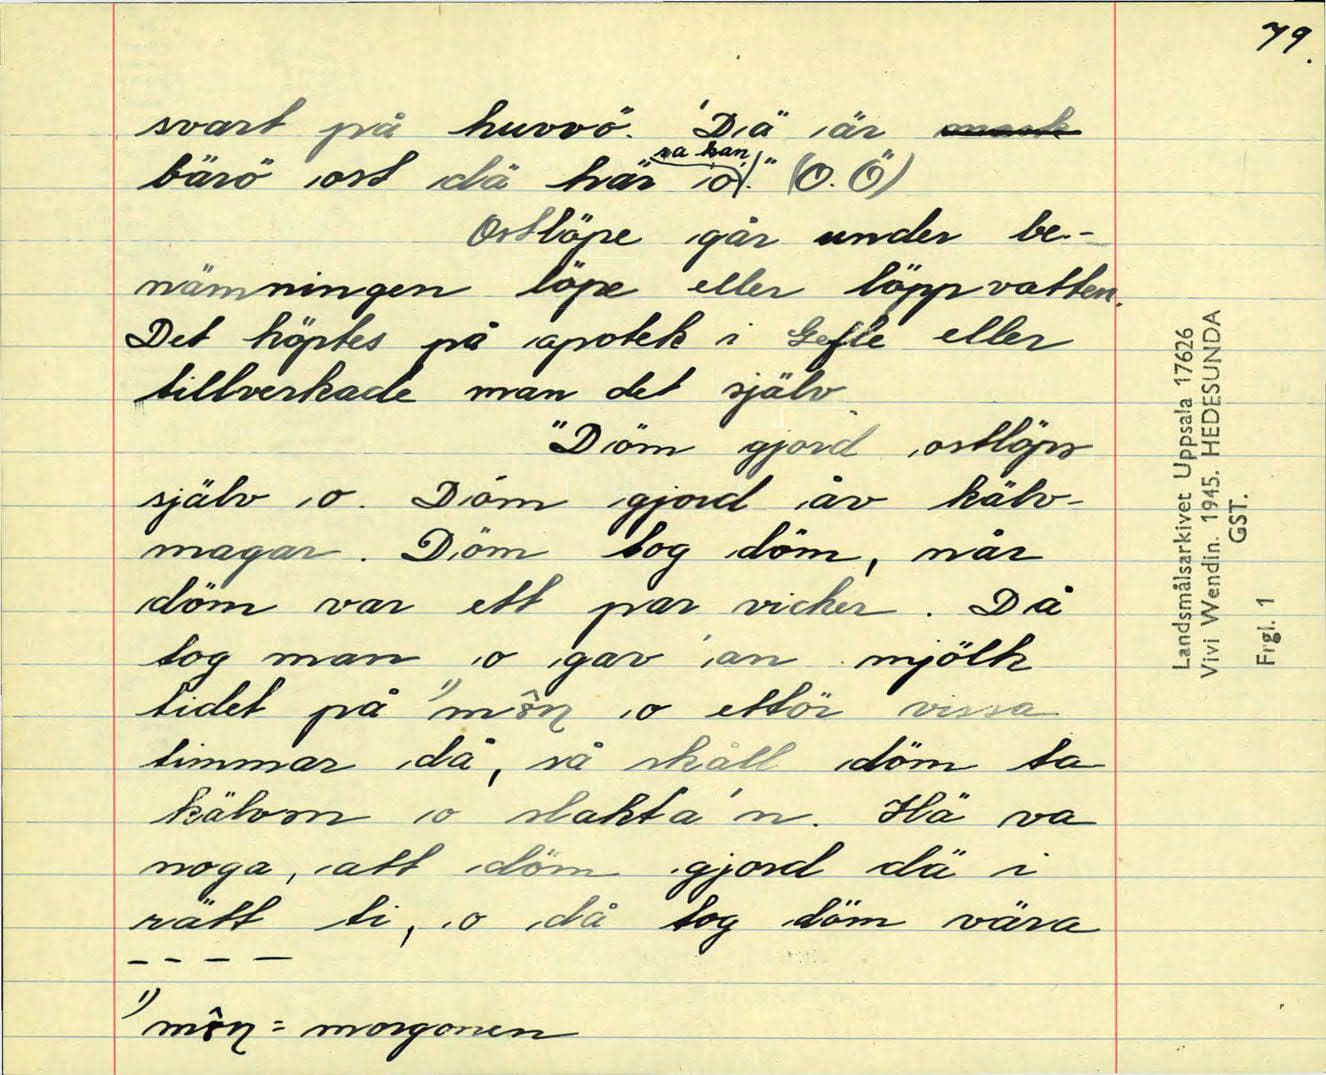 79.
svart på huvvö. 'Dä är
bärö ost dä här sa han, o." (O. Ö)
Ostlöpe går under be-
nämningen löpe eller löppvatten.
Det köptes på apotek i Gefle eller
tillverkade man det själv
"Döm gjord ostlöpm
själv o. Döm gjord åv kälv-
magar. Döm tog döm, när
döm var ett par vicker. Då
tog man o gav 'an mjölk
tidet på ¹⁾ o ettör vissa
timmar då, så skåll döm ta
kälvm o slakta'n. Hä va
noga, att döm gjord dä i
rätt ti, o då tog döm vära
- - - -
¹⁾ = morgonen
Landsmålsarkivet Uppsala 17626
Vivi Wendin. 1945. HEDESUNDA
GST.
Frgl. 1